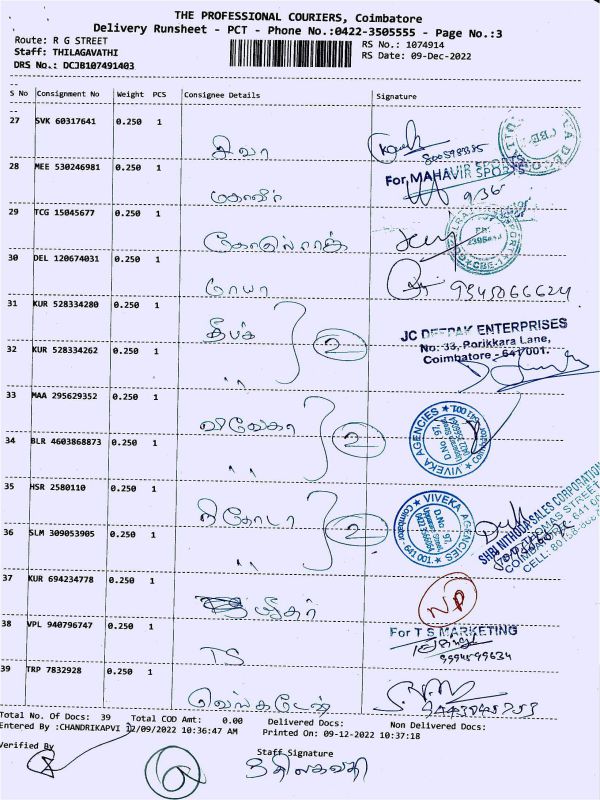 THE PROFESSIONAL COURIERS, Coimbatore
Delivery Runsheet - PCT - Phone No.:0422-3505555 - Page No.:3
Route: R G STREET
RS No.: 1074914
Staff: THILAGAVATHI
RS Date: 09-Dec-2022
DRS No.: DCJB107491403
S No Consignment No Weight PCS Consignee Details Signature
27 SVK 60317641 0.250 1 சிவா
28 MEE 530246981 0.250 1 மகாவீர் For MAHAVIR SPORTS
29 TCG 15045677 0.250 1 கோகுல்ராஜ்
30 DEL 120674031 0.250 1 மாயா
31 KUR 528334280 0.250 1 தீபக் 2 JC DEEPAK ENTERPRISES
No: 33, Porikkara Lane,
Coimbatore - 641 001.
32 KUR 528334262 0.250 1 ,,
33 MAA 295629352 0.250 1 விவேகா 2 VIVEKA AGENCIES
34 BLR 4603868873 0.250 1 ,,
35 HSR 2580110 0.250 1 நிதோடா 2 VIVEKA AGENCIES
D.No. 97
Coimbatore - 641 001.
SHRI NITHODA SALES CORPORATION
36 SLM 309053905 0.250 1
37 KUR 694234778 0.250 1 ND
38 VPL 940796747 0.250 1 TS For T S MARKETING
9994599634
39 TRP 7832928 0.250 1 வெங்கடேஷ்
Total No. Of Docs: 39 Total COD Amt: 0.00 Delivered Docs: Non Delivered Docs:
Entered By :CHANDRIKAPVI 12/09/2022 10:36:47 AM Printed On: 09-12-2022 10:37:18
Verified By Staff Signature
திலகவதி